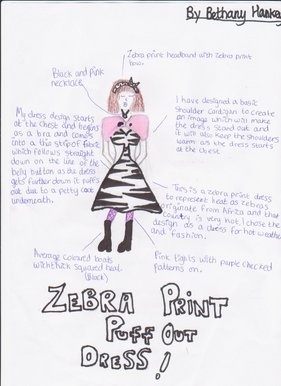 By Bethany
Zebra print headband with zebra print
bow.
Black and Pink
necklace.
My dress design starts
at the chest and begins
as a bra and comes
into a thin strip of fabric
which follows straight
down on the line of the
belly button as the dress
gets further down it puffs
out due to a petty coat
underneath.
I have designed a basic
Shoulder Cardigan to create
an image which will make
the dress stand out and
it will also keep the shoulders
warm as the dress starts
at the chest.
This is a zebra print dress
to represent heat as zebras
originate from Africa and that
country is very hot. I chose the
design as a dress for hot weather
and fashion.
Average coloured boots
with thick squared heel.
(Black)
Pink tights with purple checked
patterns on.
ZEBRA PRINT
PUFF OUT
DRESS!